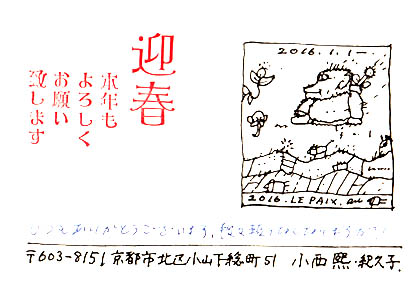 迎春
本年も
よろしく
お願い
致します
2016.1.1
2016. LE PAIX.
いつもありがとうございます。
〒603-8151 京都市北区小山下総町51 小西 熙・紀久子